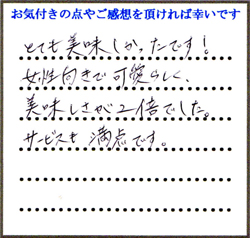 お気付きの点やご感想を頂ければ幸いです
とても美味しかったです!
女性向きで可愛らしく、
美味しさが2倍でした。
サービスも満点です。